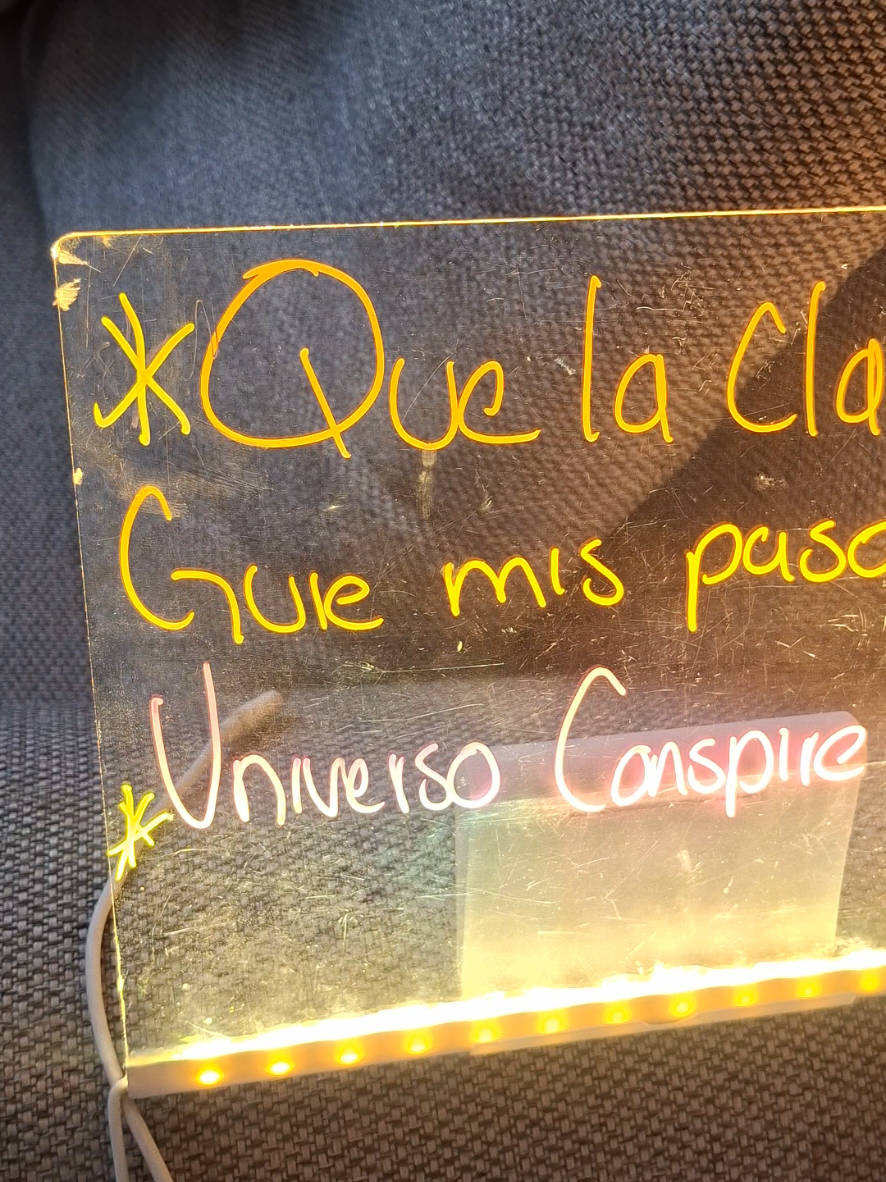 *Que la Cla
Guie mis paso
Universo Conspire
*